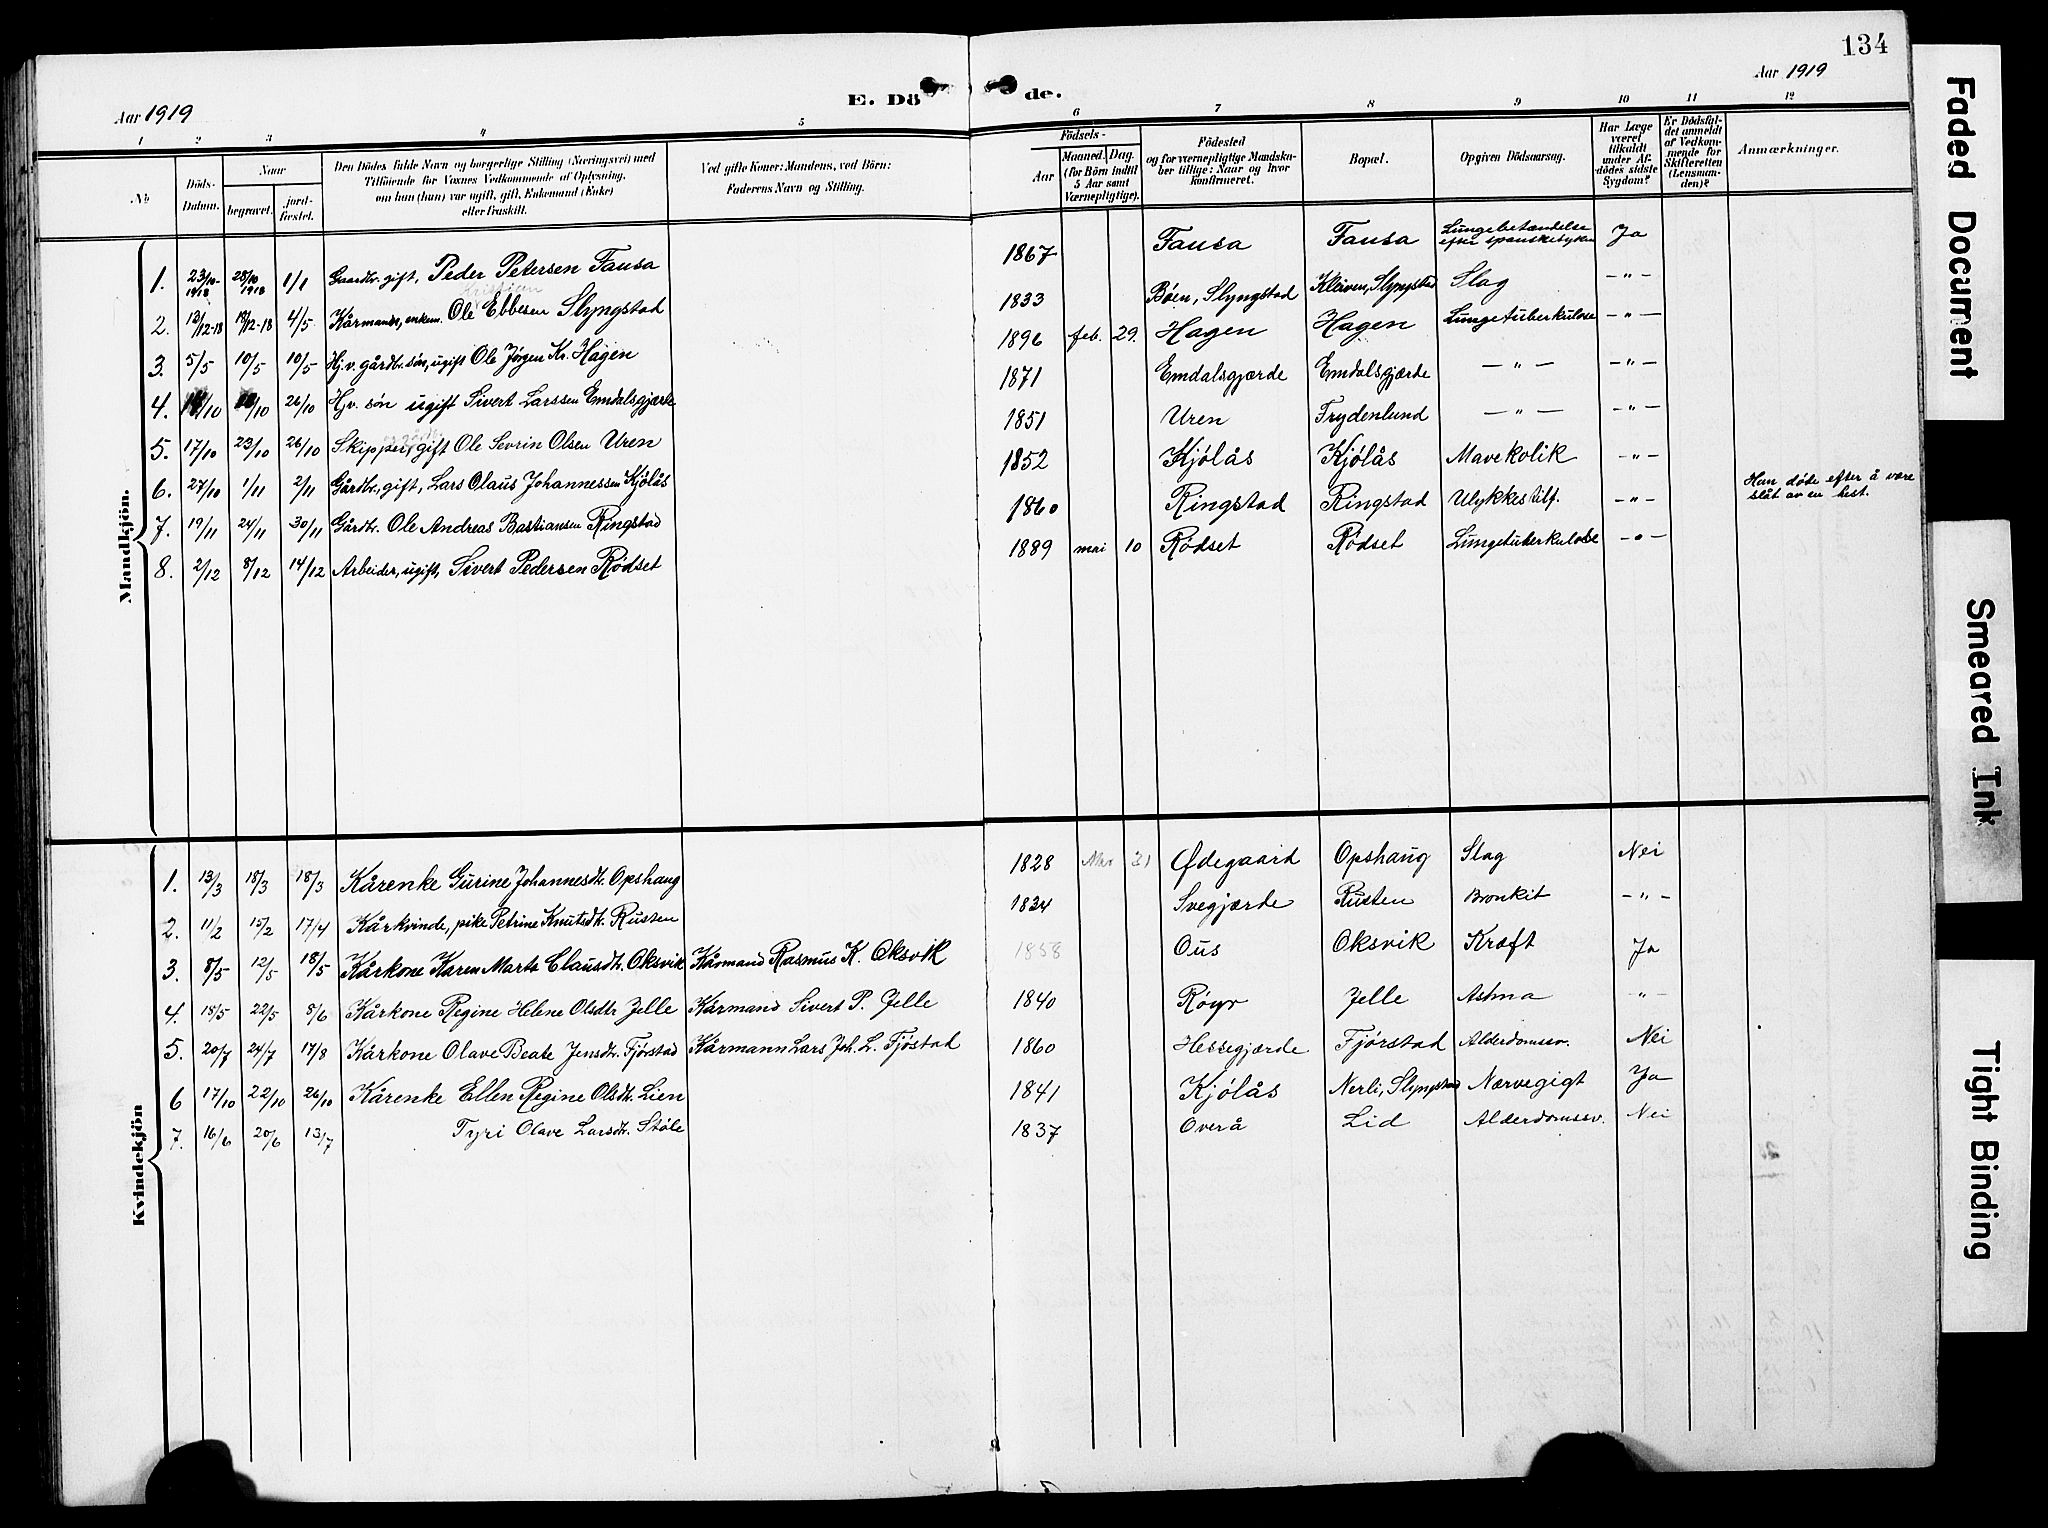 134
Aar 1919
E. Dö de.
Aar 1919
1 2 3 4 5 6 7 8 9 10 11 12
No.
Döds-Datum.
Naar
begravet.
jord-fæstet.
Den Dödes fulde Navn og borgerlige Stilling (Næringsvei) med
Tilföiende for Voxnes Vedkommende af Oplysning,
om hun (han) var ugift, gift, Enkemand (Enke)
eller fraskilt.
Ved gifte Koner: Mandens, ved Börn:
Faderens Navn og Stilling.
Födsels-
Aar
Maaned. Dag.
(for Börn indtil
5 Aar samt
Værnepligtige).
Födested
og for værnepligtige Mandska-
ber tillige: Naar og hvor
konfirmeret.
Bopæl.
Opgiven Dödsaarsag.
Har Læge
været
tilkaldt
under Af-
dödes sidste
Sygdom?
Er Dödsfal-
det anmeldt
af Vedkom-
mende for
Skifteretten
(Lensman-
den)?
Anmærkninger.
Mandkjön.
1. 23/10-1918 28/10 1918 1/1 Gaardbr. gift, Peder Petersen Fausa 1867 Fausa Fausa Lungebetændelse efter spanskesyken Ja
Kristian
2. 13/12-18 18/12-18 4/5 Kårmand, enkem. Ole Ebbesen Slyngstad 1833 Böen, Slyngstad Kleiven, Slyngstad Slag -"-
3. 5/5 10/5 10/5 Hj.v. gårdbr. søn, ugift Ole Jørgen Kr. Hagen 1896 feb. 29. Hagen Hagen Lungetuberkulose -"-
4. /10 /10 26/10 Hjv. søn ugift Sivert Larssen Emdalsgjærde 1871 Emdalsgjærde Emdalsgjærde -"- -"-
5. 17/10 23/10 26/10 Skipper, gift Ole Sevrin Olsen Uren 1851 Uren Frydenlund -"- -"-
6. 27/10 1/11 2/11 Gårdbr., gift, Lars Olaus Johannessen Kjölås 1852 Kjölås Kjölås Mavekolik -"-
7. 19/11 24/11 30/11 Gårdbr. Ole Andreas Bastiansen Ringstad 1860 Ringstad Ringstad Ulykkestilf. -"- Han døde efter å være
slåt av en hest.
8. 2/12 8/12 14/12 Arbeider, ugift, Sivert Pedersen Rödset 1889 mai 10 Rödset Rödset Lungetuberkulose -"-
Kvindekjön
1. 13/3 18/3 18/3 Kårenke Gurine Johannesdt. Opshaug 1828 31 Ødegaard Opshaug Slag Nei
2. 11/2 15/2 17/4 Kårkvinde, pike Petrine Knutsdt. Rusten 1834 Svegjærde Rusten Bronkit -"-
3. 8/5 12/5 18/5 Kårkone Karen Marta Clausdt. Oksvik Kårmand Rasmus K. Oksvik 1838 Ous Oksvik Kræft Ja
4. 18/5 22/5 8/6 Kårkone Regine Helene Olsdtr Jelle Kårmand Sivert P. Jelle 1840 Röyr Jelle Astma -"-
5. 20/7 24/7 17/8 Kårkone Olave Beate Jensdt. Fjörstad Kårmann Lars Joh. L. Fjöstad 1860 Hessegjærde Fjörstad Alderdomssv. Nei
6 17/10 22/10 26/10 Kårenke Ellen Regine Olsdt. Lien 1841 Kjölås Nerli, Slyngstad Nærvegigt Ja
7. 16/6 20/6 13/7 Tyri Olave Larsdt. Støle 1837 Overå Lid Alderdomssv. Nei
Faded Document
Smeared Ink
Tight Binding